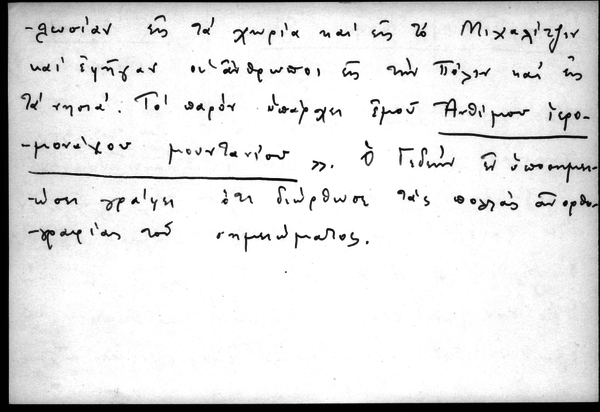 -λωσίαν εἰς τά χωρία καί εἰς τό Μιχαλίτζιν
καί ἔφηγαν οἱ ἄνθρωποι εἰς τήν Πόλιν καί εἰς
τά νησιά. Τό παρόν ὑπάρχει ἐμοῦ Ἀνθίμου ἱερο-
-μονάχου μουντανίου ». Ὁ Γεδεών ἐν ὑποσημει-
-ώσει γράφει ὅτι διώρθωσε τάς πολλάς ἀνορθο-
-γραφίας τοῦ σημειώματος.